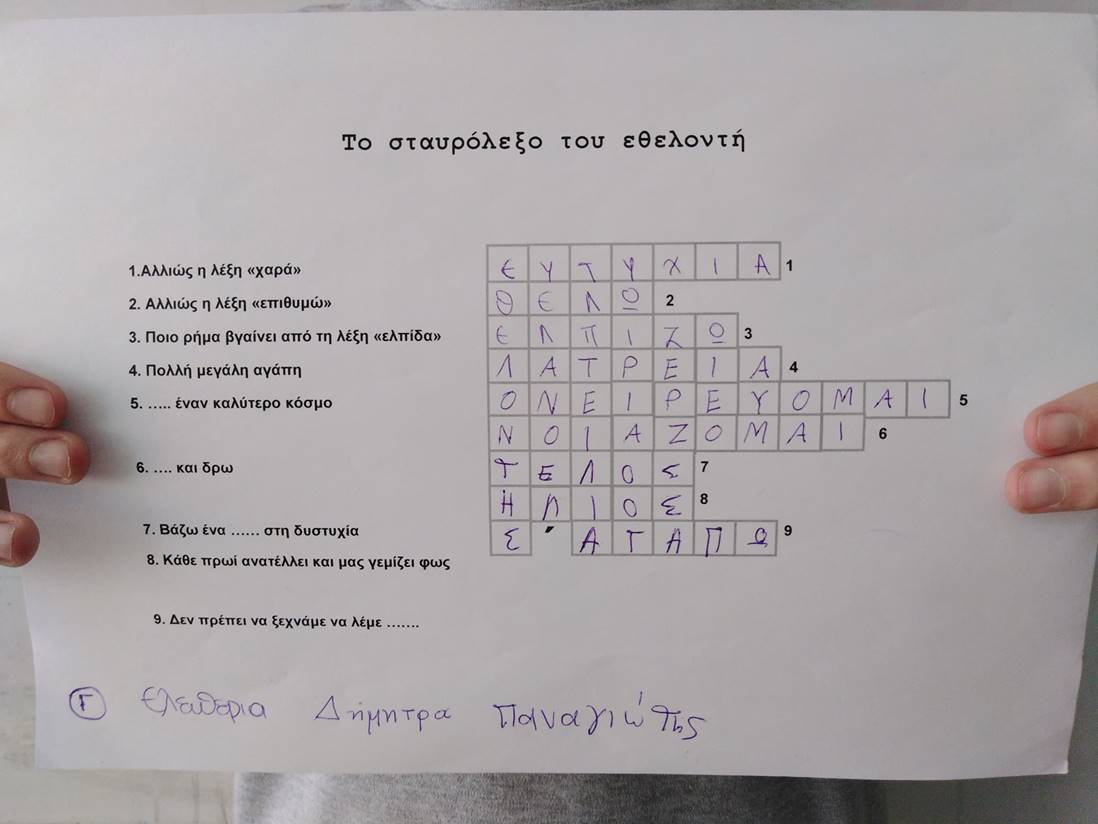 Το σταυρόλεξο του εθελοντή
1.Αλλιώς η λέξη «χαρά»
2. Αλλιώς η λέξη «επιθυμώ»
3. Ποιο ρήμα βγαίνει από τη λέξη «ελπίδα»
4. Πολλή μεγάλη αγάπη
5. ..... έναν καλύτερο κόσμο
6. .... και δρω
7. Βάζω ένα ...... στη δυστυχία
8. Κάθε πρωί ανατέλλει και μας γεμίζει φως
9. Δεν πρέπει να ξεχνάμε να λέμε .......
ΕΥΤΥΧΙΑ 1
ΘΕΛΩ 2
ΕΛΠΙΖΩ 3
ΛΑΤΡΕΙΑ 4
ΟΝΕΙΡΕΥΟΜΑΙ 5
ΝΟΙΑΖΟΜΑΙ 6
ΤΕΛΟΣ 7
ΗΛΙΟΣ 8
Σ ' ΑΓΑΠΩ 9
Γ Ελευθερια Δήμητρα Παναγιώτης